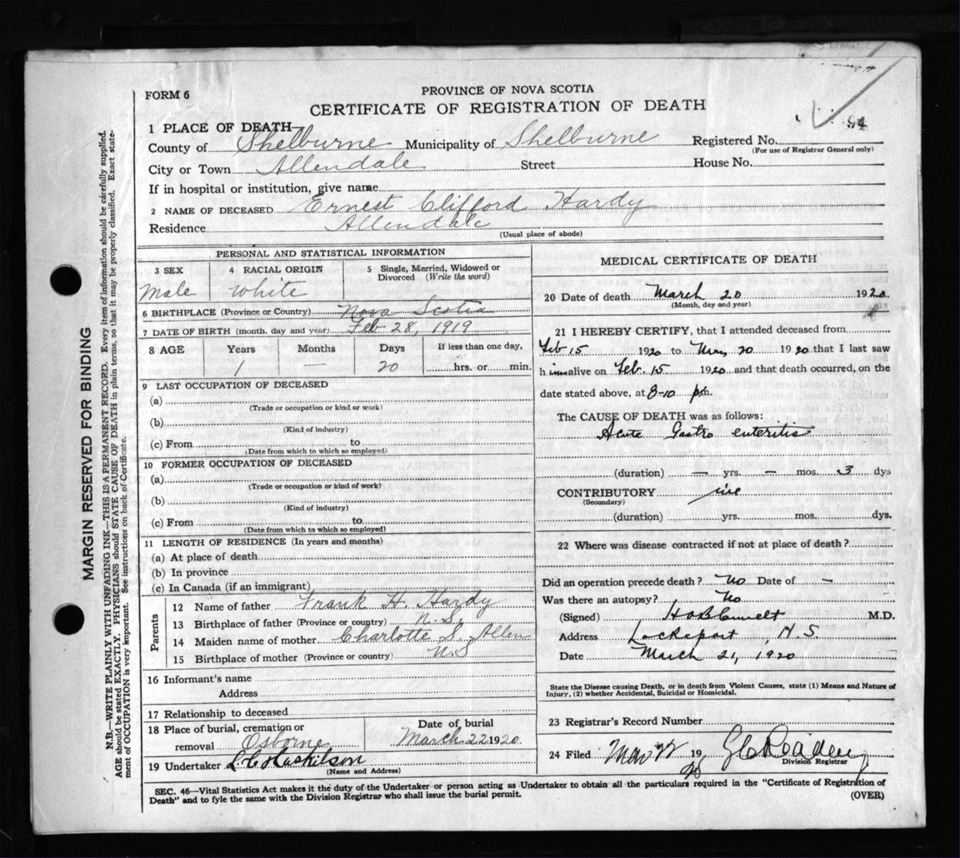 PROVINCE OF NOVA SCOTIA
FORM 6
CERTIFICATE OF REGISTRATION OF DEATH
1 PLACE OF DEATH
County of Shelburne Municipality of Shelburne Registered No.
(For use of Registrar General only)
City or Town Allendale Street House No.
If in hospital or institution, give name
2 NAME OF DECEASED Ernest Clifford Hardy
Residence Allendale
(Usual place of abode)
PERSONAL AND STATISTICAL INFORMATION
3 SEX 4 RACIAL ORIGIN 5 Single, Married, Widowed or Divorced (Write the word)
Male White
6 BIRTHPLACE (Province or Country) Nova Scotia
7 DATE OF BIRTH (month, day and year) Feb 28, 1919
8 AGE Years Months Days If less than one day,
1 — 20 hrs. or min.
9 LAST OCCUPATION OF DECEASED
(a)
(Trade or occupation or kind or work)
(b)
(Kind of industry)
(c) From to
(Date from which to which so employed)
10 FORMER OCCUPATION OF DECEASED
(a)
(Trade or occupation or kind of work)
(b)
(Kind of industry)
(c) From to
(Date from which to which so employed)
11 LENGTH OF RESIDENCE (In years and months)
(a) At place of death
(b) In province
(c) In Canada (if an immigrant)
Parents
12 Name of father Frank H. Hardy
13 Birthplace of father (Province or country) N.S.
14 Maiden name of mother Charlotte S. Allen
15 Birthplace of mother (Province or country) N.S
16 Informant's name
Address
17 Relationship to deceased
18 Place of burial, cremation or removal Osborne
Date of burial
March 22 1920
19 Undertaker
(Name and Address)
MEDICAL CERTIFICATE OF DEATH
20 Date of death March 20 1920
(Month, day and year)
21 I HEREBY CERTIFY, that I attended deceased from
Feb 15 1920 to Mar 20 1920 that I last saw
h im alive on Feb. 15 1920 and that death occurred, on the
date stated above, at 8-10 p m.
The CAUSE OF DEATH was as follows:
Acute Gastro enteritis
(duration) — yrs. — mos. 3 dys
CONTRIBUTORY
(Secondary)
(duration) yrs. mos. dys.
22 Where was disease contracted if not at place of death?
Did an operation precede death? No Date of —
Was there an autopsy? No
(Signed) M.D.
Address Lockeport, N.S.
Date March 21, 1920
State the Disease causing Death, or in death from Violent Causes, state (1) Means and Nature of
Injury, (2) whether Accidental, Suicidal or Homicidal.
23 Registrar's Record Number
24 Filed 19
Division Registrar
SEC. 46—Vital Statistics Act makes it the duty of the Undertaker or person acting as Undertaker to obtain all the particulars required in the "Certificate of Registration of
Death" and to fyle the same with the Division Registrar who shall issue the burial permit.
(OVER)
MARGIN RESERVED FOR BINDING
N.B.—WRITE PLAINLY WITH UNFADING INK—THIS IS A PERMANENT RECORD. Every item of information should be carefully supplied.
AGE should be stated EXACTLY. PHYSICIANS should STATE CAUSE OF DEATH in plain terms, so that it may be properly classified. Exact state-
ment of OCCUPATION is very important. See instructions on back of Certificate.